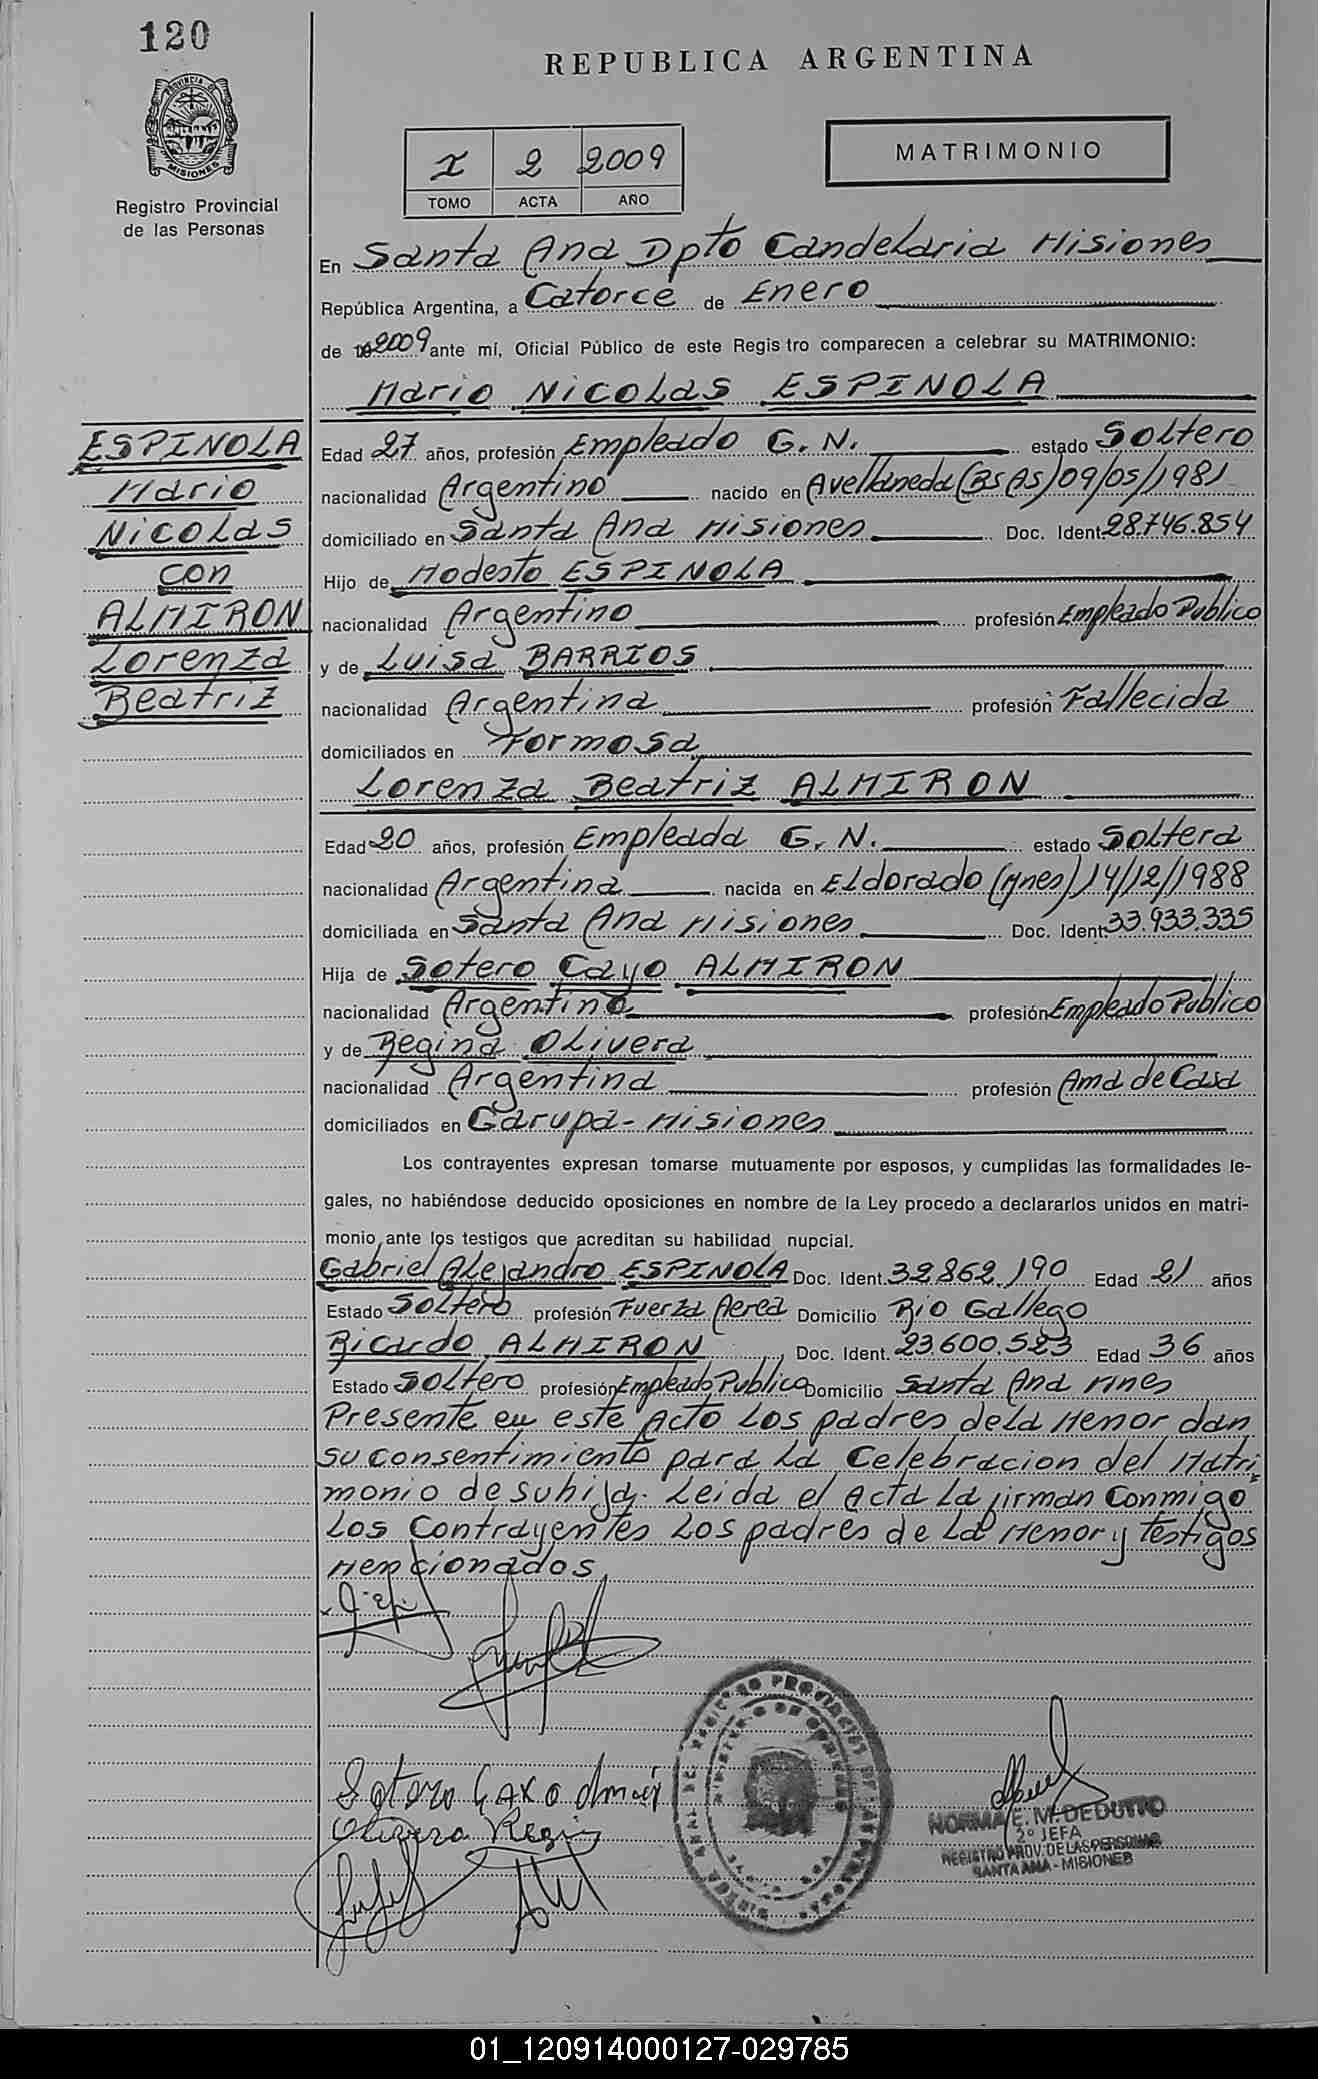 120
REPUBLICA ARGENTINA
PROVINCIA DE
MISIONES
Registro Provincial
de las Personas
I 2 2009
TOMO ACTA AÑO
MATRIMONIO
En Santa Ana Dpto Candelaria Misiones
República Argentina, a Catorce de Enero
de 2009 ante mí, Oficial Público de este Regis tro comparecen a celebrar su MATRIMONIO:
Mario Nicolas ESPINOLA
ESPINOLA
Mario
Nicolas
con
ALMIRON
Lorenza
Beatriz
Edad 27 años, profesión Empleado G. N. estado Soltero
nacionalidad Argentino nacido en Avellaneda (Bs As) 09/05/1981
domiciliado en Santa Ana Misiones Doc. Ident. 28.746.854
Hijo de Modesto ESPINOLA
nacionalidad Argentino profesión Empleado Publico
y de Luisa BARRIOS
nacionalidad Argentina profesión Fallecida
domiciliados en Formosa
Lorenza Beatriz ALMIRON
Edad 20 años, profesión Empleada G. N. estado Soltera
nacionalidad Argentina nacida en Eldorado (Mnes) 14/12/1988
domiciliada en Santa Ana Misiones Doc. Ident. 33.933.335
Hija de Sotero Cayo ALMIRON
nacionalidad Argentino profesión Empleado Publico
y de Regina Olivera
nacionalidad Argentina profesión Ama de Casa
domiciliados en Garupa - Misiones
Los contrayentes expresan tomarse mutuamente por esposos, y cumplidas las formalidades le-
gales, no habiéndose deducido oposiciones en nombre de la Ley procedo a declararlos unidos en matri-
monio ante los testigos que acreditan su habilidad nupcial.
Gabriel Alejandro ESPINOLA Doc. Ident. 32.862.190 Edad 21 años
Estado Soltero profesión Fuerza Aerea Domicilio Rio Gallego
Ricardo ALMIRON Doc. Ident. 23.600.523 Edad 36 años
Estado Soltero profesión Empleado Publico Domicilio Santa Ana Mnes
Presente en este Acto Los padres de la Menor dan
su consentimiento para La Celebracion del Matri
monio de su hija. Leida el Acta La firman Conmigo
Los Contrayentes Los padres de La Menor y Testigos
Mencionados
Sotero Cayo
Olivera Regin
NORMA E. M. DE DUTTO
2º JEFA
REGISTRO PROV. DE LAS PERSONAS
SANTA ANA - MISIONES
01_120914000127-029785